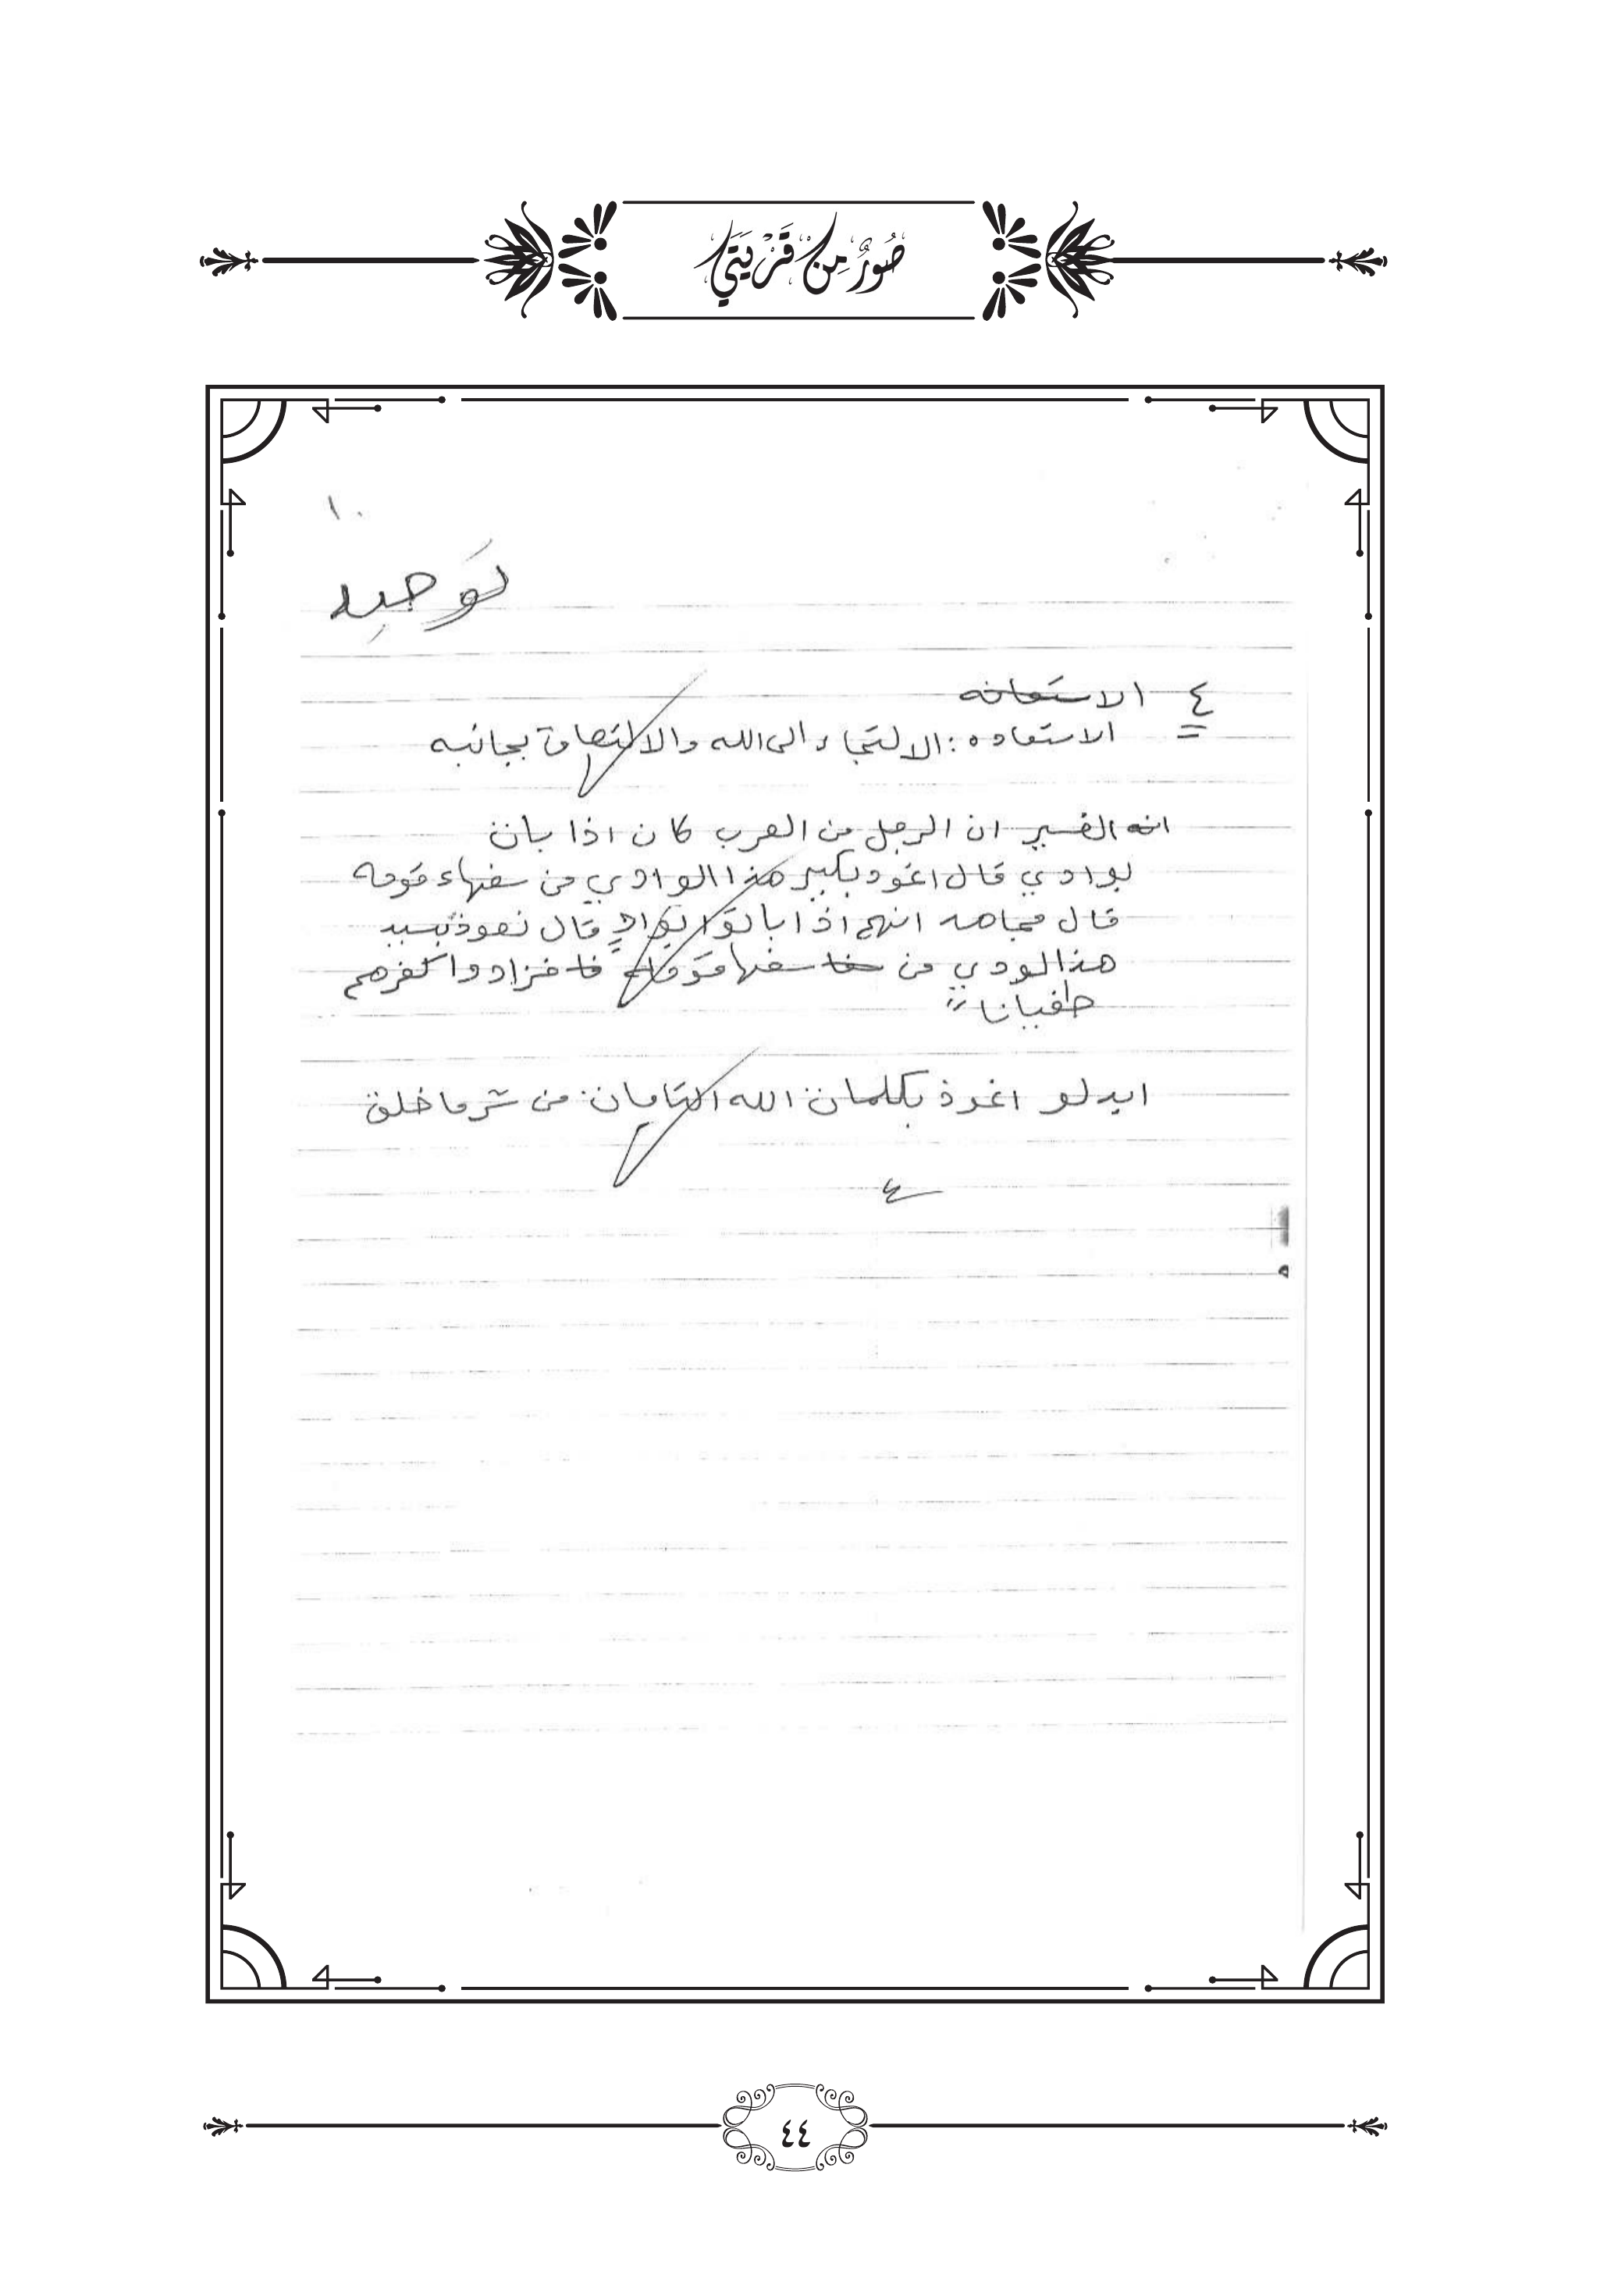 صُورٌ مِنْ قَرْيَتِي
١٠
توحيد
٤ الاستعانه
الاستعاده : الالتجاء الى الله والالتصاق بجانبه
انه الفسير ان الرجل من العرب كان اذا بات
بوادي قال اعوذ بكبير هذا الوادي من سفهاء قومه
قال مجاهد انهم اذا باتوا بواد قال نعوذ بسيد
هذالودي من سفها قومه فا فزادوا كفرهم
طغيانا
ابدلو اعوذ بكلمات الله التامات من شر ما خلق
٤٤